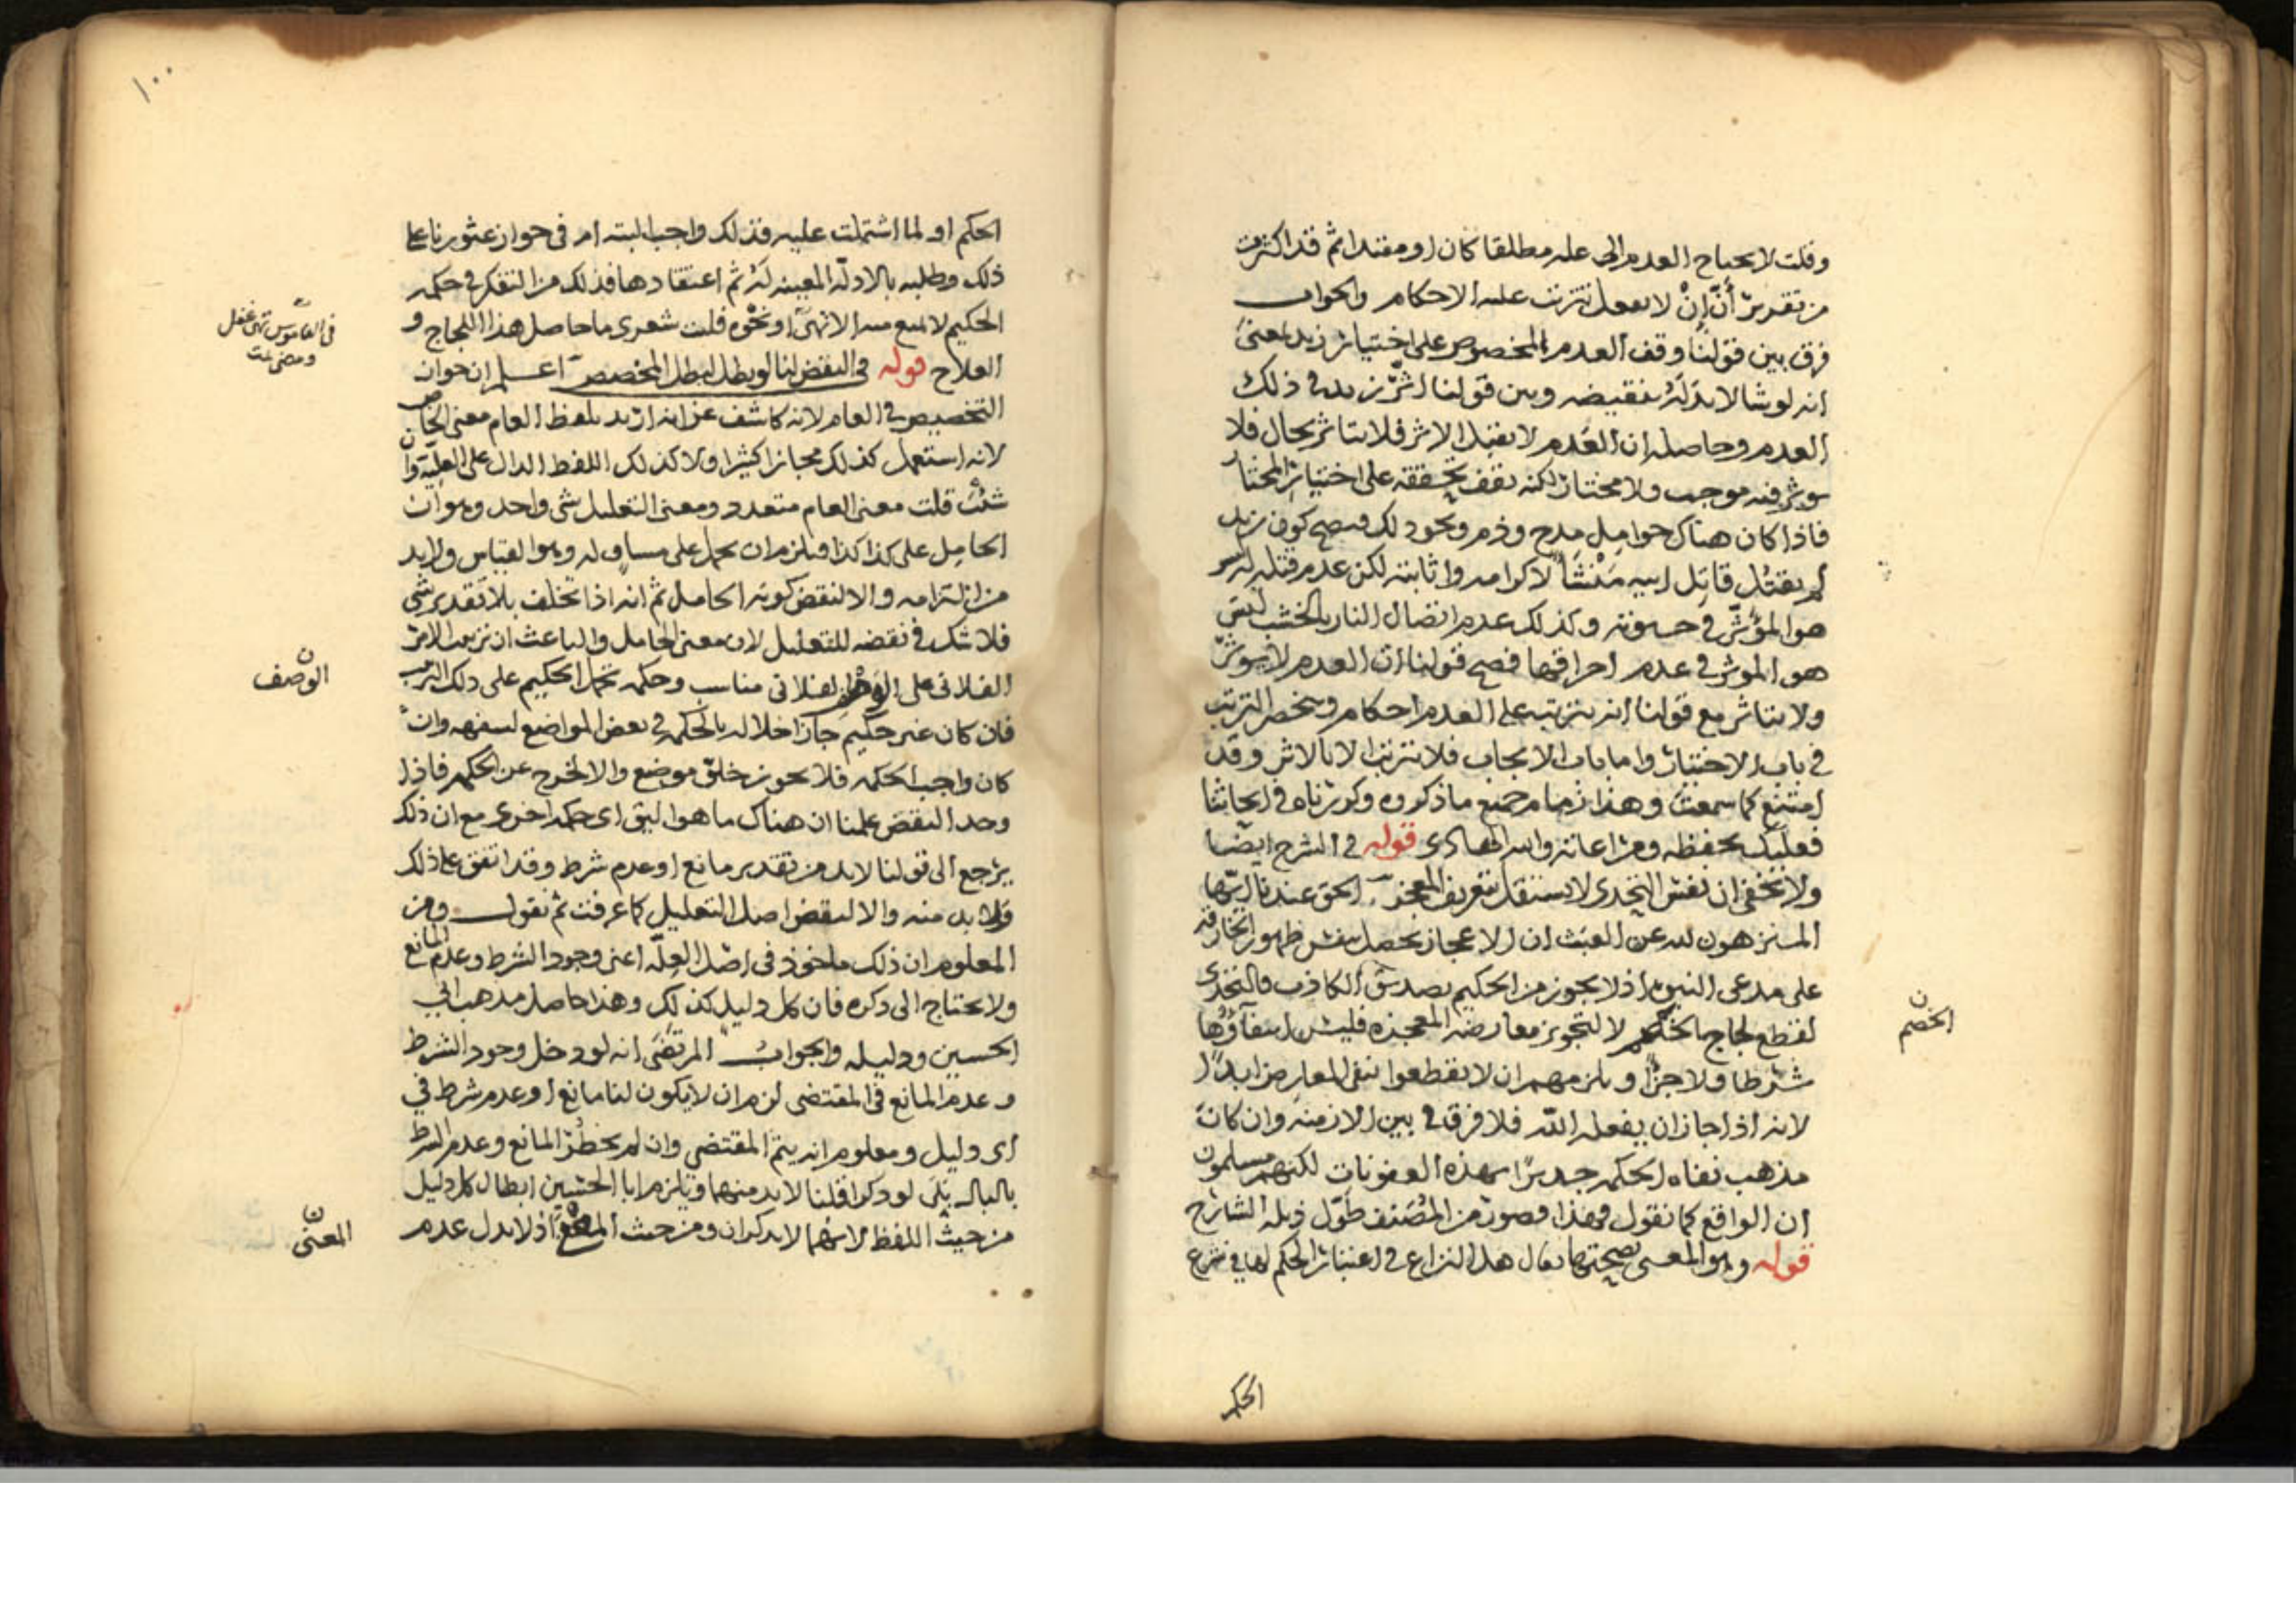 وقلت لا يحتاج العدم الى علة مطلقا كان او مقيدا ثم قد اكثرت
من تقدير أنّ إنْ لا يفعل تترتب عليه الاحكام والجواب
فرق بين قولنا وقف العدم المخصوص على اختيار زيد بمعنى
انه لو شا لابدله بنقيضه وبين قولنا اثّر زيد في ذلك
العدم وحاصله ان العدم لا يقبل الاثر فلا يتاثر بحال فلا
يوثر فيه موجب ولا مختار لكنه يقف تحققه على اختيار المختار
فاذا كان هناك حوامل مدح وذم ونحو ذلك فيصح كون زيد
لم يقتل قاتل ابيه مَنْشَأ لاكرامه واثابته لكن عدم قتله ليس
هو المؤثّر في حسونته وكذلك عدم اتصال النار بالخشب ليس
هو الموثر في عدم احراقها فصح قولنا ان العدم لا يوثر
ولا يتاثر مع قولنا انه يترتب على العدم احكام وينحصر الترتب
في باب الاختيار واما باب الايجاب فلا تترتب الا بالاثر وقد
امتنع كما سمعت وهذا زمام جميع ما ذكروه وكررناه في ابحاثنا
فعليك بحفظه ومراعاته والله الهادي قوله في الشرح ايضا
ولا يخفى ان نفس التحدي لا يستقل بتعريف المعجز الحق عندنا ايها
المنزهون لله عن العبث ان الاعجاز يحصل بنفس ظهور الخارقة
على مدعي النبوة اذ لا يجوز من الحكيم تصديق الكاذب فالتحدي
لقطع لجاج الخصم لا لتجويز معارضة المعجزة فليس انتفاؤها
شرطا ولا جزًا ويلزمهم ان لا يقطعوا بنفي المعارض ابدًا
لانه اذا جاز ان يفعله الله فلا فرق في بين الازمنة وان كان
مذهب نفاة الحكمة جديرًا بهذه العفونات لكنهم مسلمون
ان الواقع كما نقول فهذا قصور من المصنف طوّل ذيله الشارح
قوله وهو المعنى بصحتها يقال هذا النزاع في اعتبار الحكم لها في شرع
الخصم
الحكم
١٠٠
الحكم او لما اشتملت عليه فذلك واجب البتة ام في جواز عثورنا على
ذلك وطلبه بالادلة المعينة له ثم اعتقادها فذلك من التفكر في حكمة
الحكيم لا يمنع منه الا تهيّ او نحوه فليت شعري ما حاصل هذا اللجاج و
العلاج قوله في النقض لنا لو بطل لبطل المخصص اعلم ان جواز
التخصيص في العام لانه كاشف عن انه اريد بلفظ العام معنى الخاص
لانه استعمل كذلك مجازا كثيرا ولا كذلك اللفظ الدال على العلية وان
شئت قلت معنى العام متعدد ومعنى التعليل شي واحد وهو ان
الحامِل على كذا كذا فيلزم ان يحمل على مساوٍ له وهو القياس ولا بد
من التزامه والا لنقض كونه الحامل ثم انه اذا تخلف بلا تقدير شي
فلا شك في نقضه للتعليل لان معنى الحامل والباعث ان ترتب الامر
الفلاني على الفلاني مناسب وحكمة تحمل الحكيم على ذلك الترتيب
فان كان غير حكيم جاز اخلاله بالحكمة في بعض المواضع لسفهه وان
كان واجب الحكمة فلا يجوز خلوّ موضع والا لخرج عن الحكمة فاذا
وجد النقض علمنا ان هناك ما هو اليق اي حكمة اخرى مع ان ذلك
يرجع الى قولنا لا بد من تقدير مانع او عدم شرط وقد اتفق على ذلك
ولا بد منه والا لنقض اصل التعليل كما عرفت ثم نقول ومن
المعلوم ان ذلك ماخوذ في اصل العلّة اعني وجود الشرط وعدم المانع
ولا يحتاج الى ذكره فان كل دليل كذلك وهذا حاصل مذهب ابي
الحسين ودليله والجواب المرتضى انه لو دخل وجود الشرط
وعدم المانع في المقتضى لزم ان لا يكون لنا مانع او عدم شرط في
اي دليل ومعلوم انه يتم المقتضي وان لم يخطر المانع وعدم الشرط
بالبال بَلَى لو ذكرا قلنا لا بد منهما ويلزم ابا الحسين ابطال كل دليل
من حيث اللفظ لانهما لا يذكران ومن حيث اذ لا يدل عدم
في القاموس تهيّ غفل
الوصف
المعنى